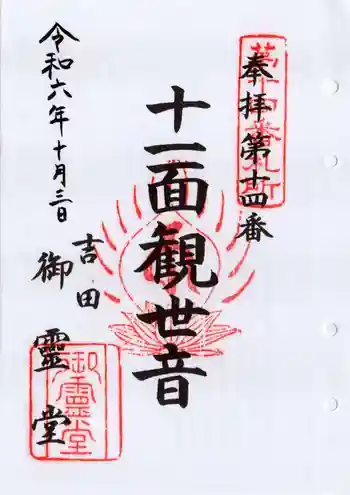 奉拝第十四番
十一面観世音
吉田
御靈堂
令和六年十月三日
御靈堂